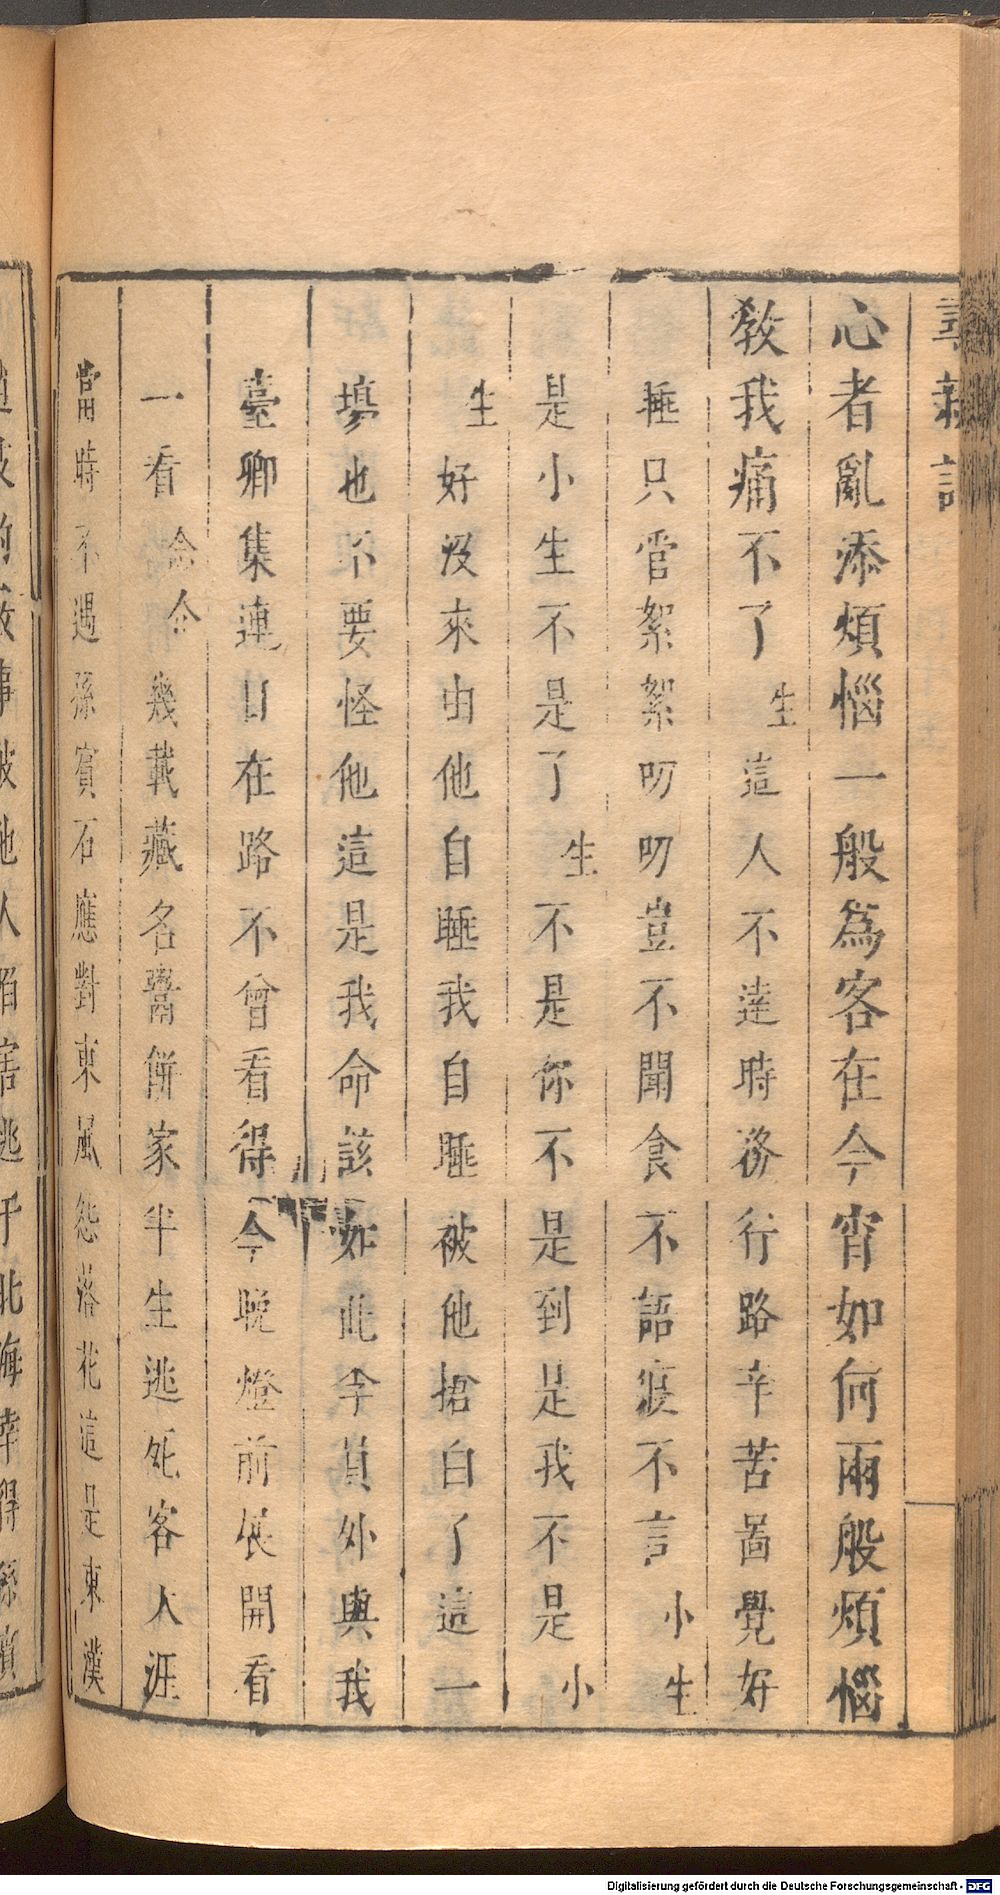 尋親記
心者亂添煩惱一般為客在今宵如何兩般煩惱
教我痛不了生這人不達時務行路辛苦啚覺好
睡只管絮絮叨叨豈不聞食不語寢不言小生
是小生不是了生不是你不是到是我不是小
生好沒來由他自睡我自睡被他搶白了這一
塲也不要怪他這是我命該如此李員外與我
臺卿集連日在路不曾看得今晚燈前展開看
一看合仝幾載藏名鬻餅家半生逃死客天涯
當時不遇孫賓石應對東風怨落花這是東漢
Digitalisierung gefördert durch die Deutsche Forschungsgemeinschaft - DFG